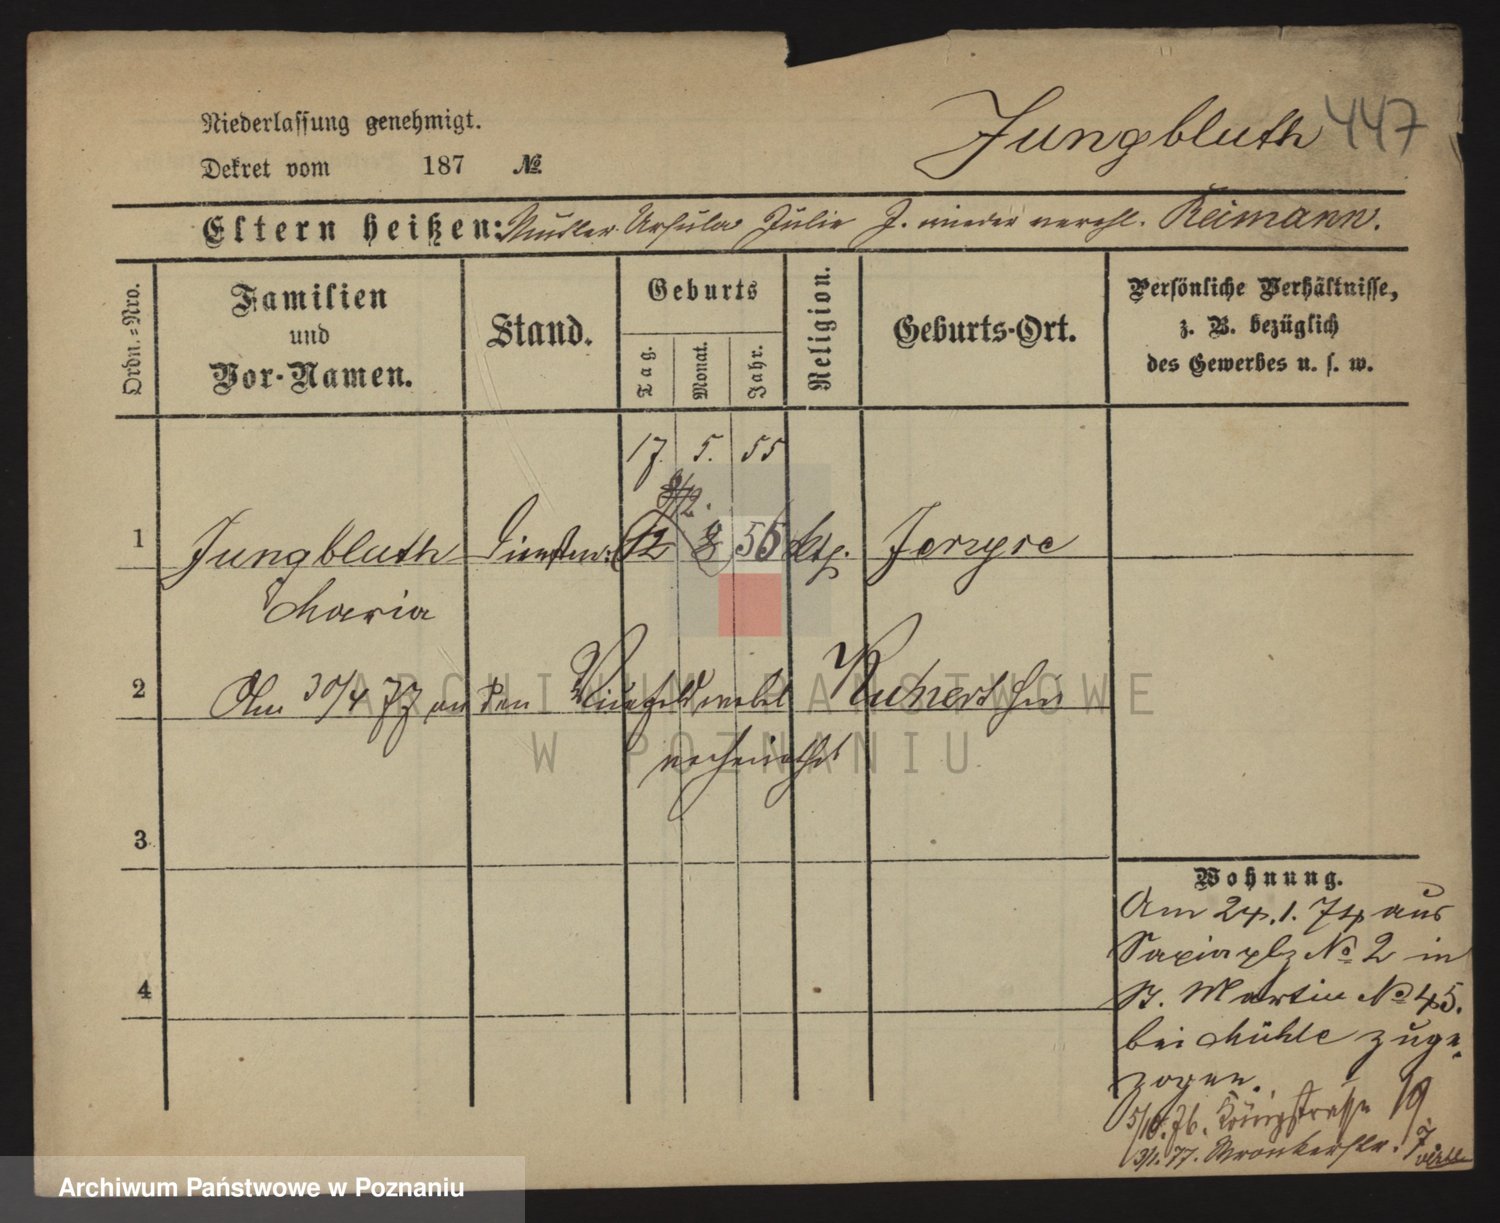 Jungbluth 447
Niederlassung genehmigt.
Dekret vom 187 №
Eltern heißen: Mutter Ursula Julie J. wieder verehl. Reimann.
Ordn.=Nro.
Familien
und
Vor-Namen.
Stand.
Geburts
Tag.
Monat.
Jahr.
Religion.
Geburts-Ort.
Persönliche Verhältnisse,
z. B. bezüglich
des Gewerbes u. s. w.
17. 5. 55
1 Jungbluth 12 8 55 kth. Jerzyce
Maria
2 Am 30/4 77 an den Vicefeldwebel
verheirathet
3
4
Wohnung.
Am 24.1.74 aus
Sapiaplz № 2 in
St. Martin № 45.
bei Mühle zuge-
zogen.
5/10.76. Königstrasse 19
3/1.77. Wronkerstr. 7.
ARCHIWUM PAŃSTWOWE
W POZNANIU
Archiwum Państwowe w Poznaniu